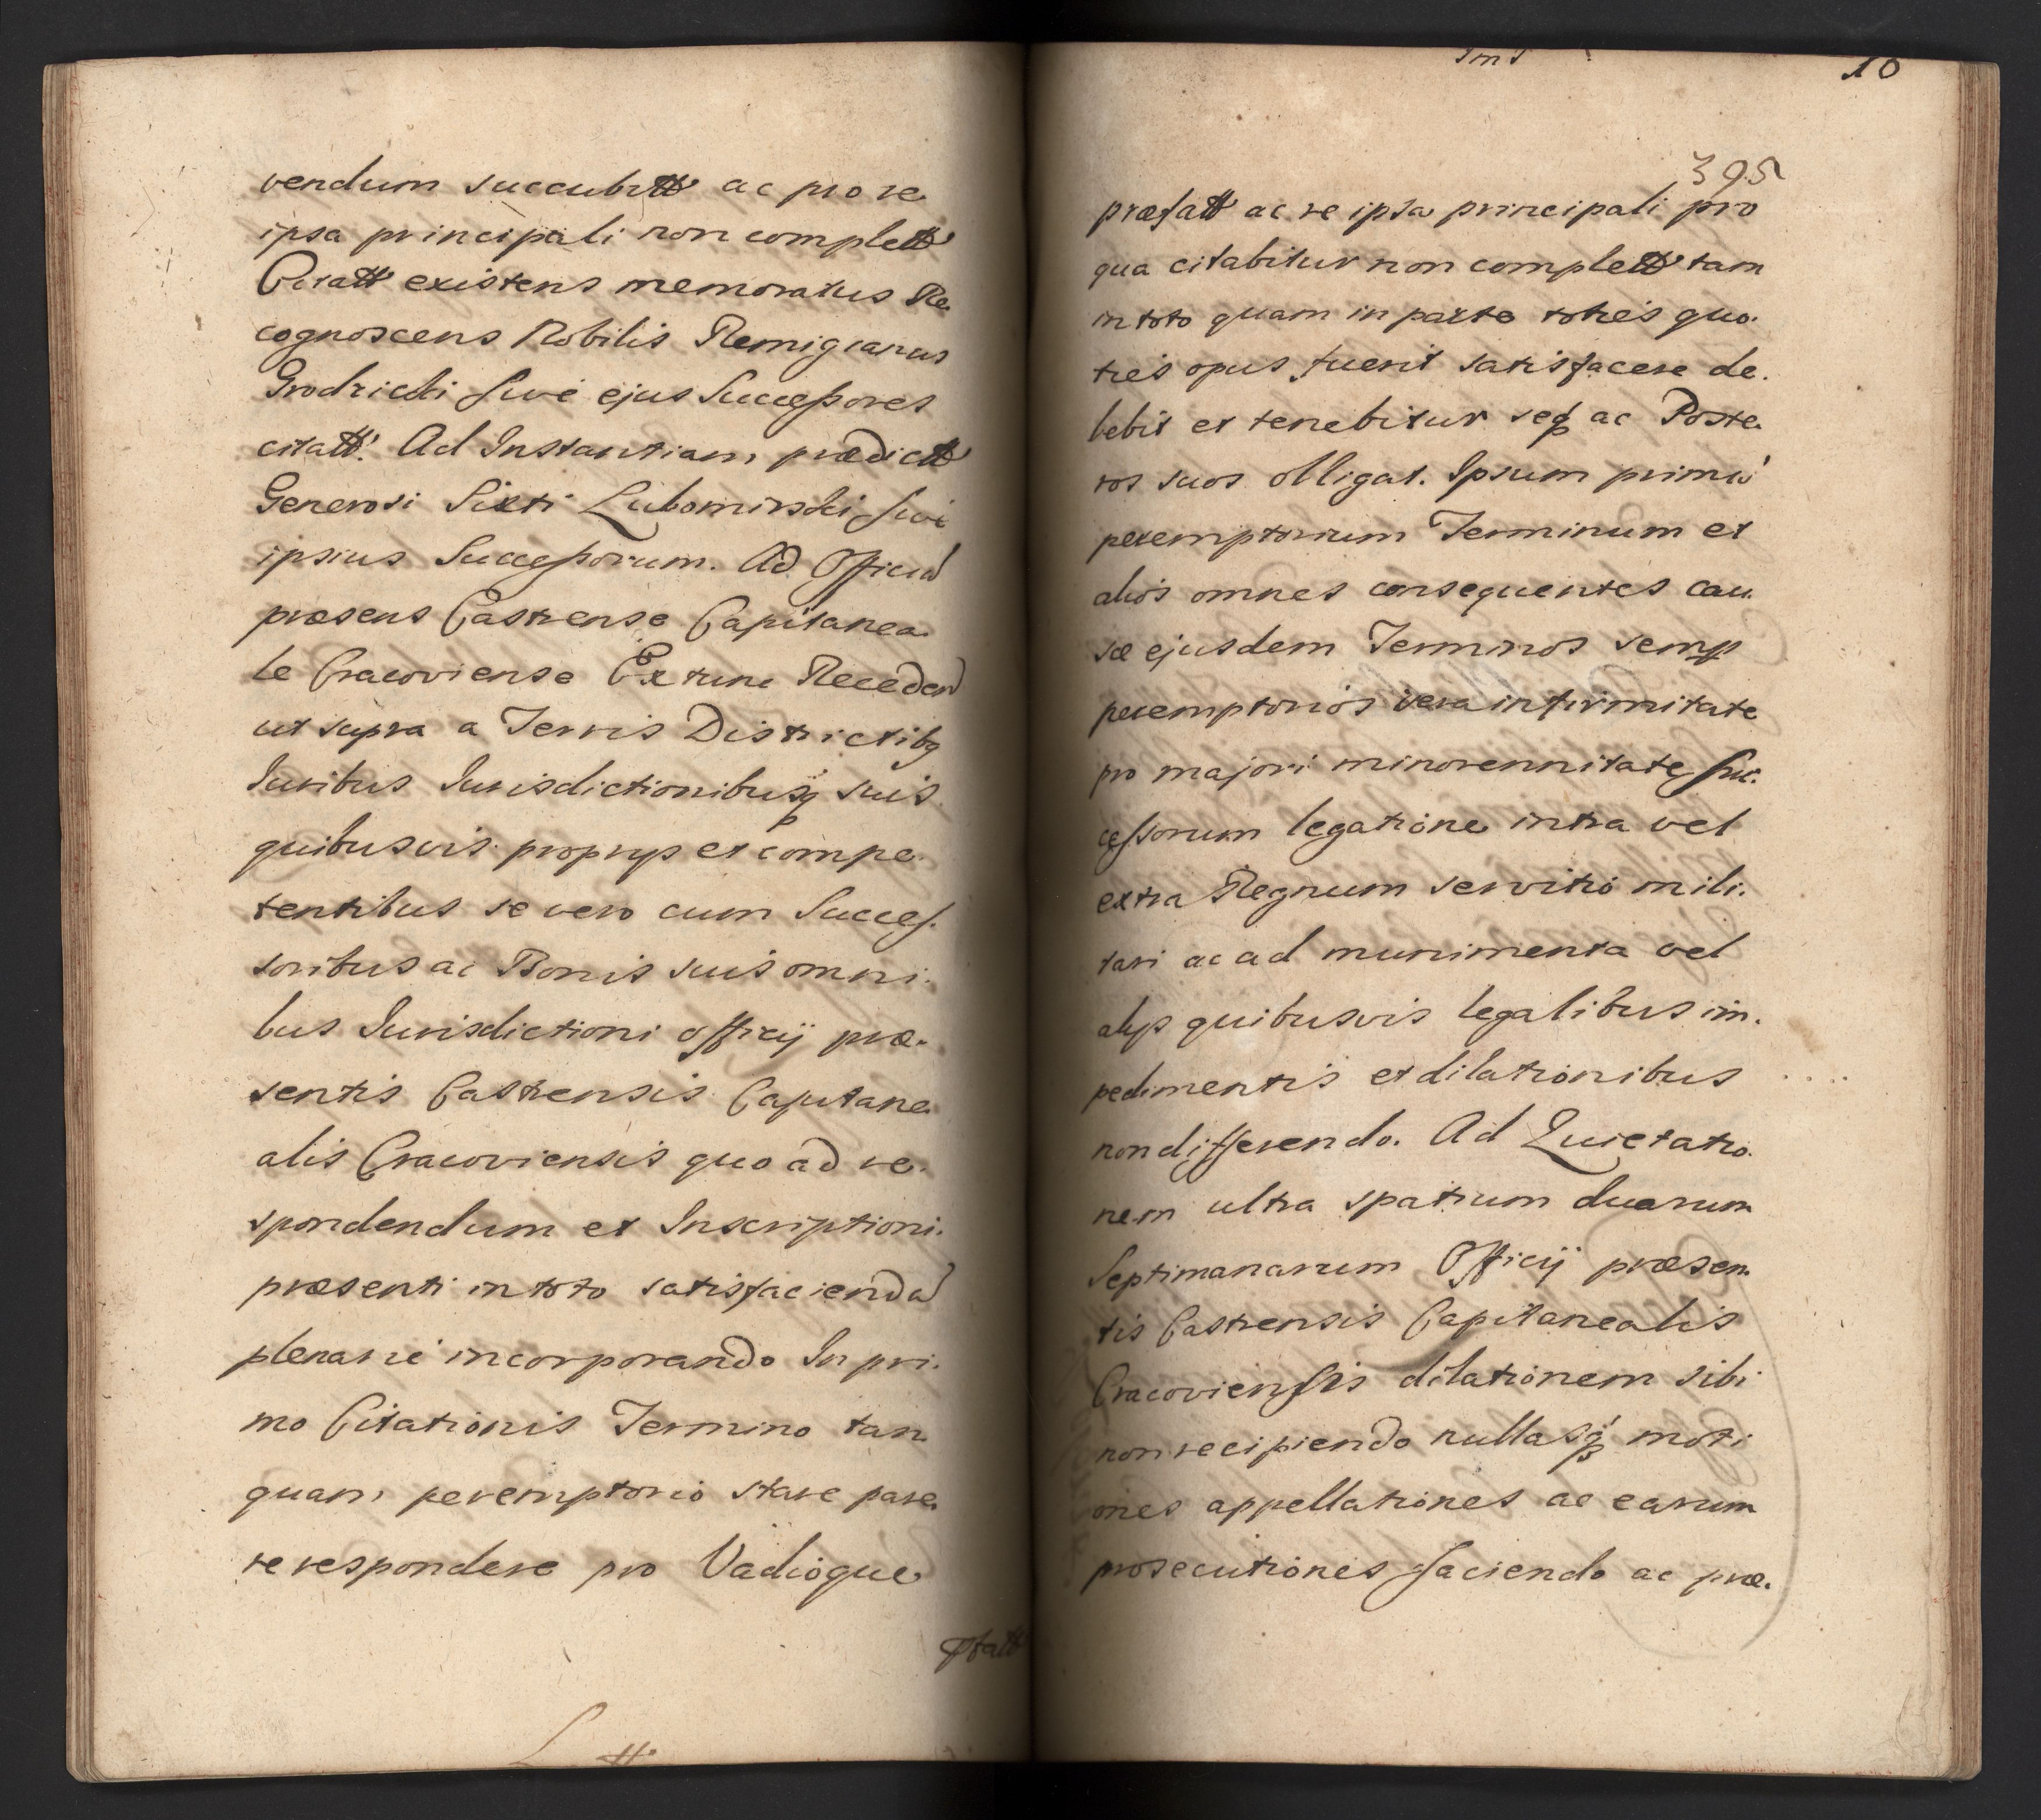 vendum succubitt ac pro re
ipsa principali non complett
Citatt existens memoratus Re
cognoscens Nobilis Remigianus
Grodzicki sive ejus Successores
citatt. Ad Instantiam prædictt
Generosi Sixti Lubomirski sive
ipsius Successorum. Ad Officiu
præsens Castrense Capitanea
le Cracoviense Ex tunc Receden
ut supra a Terris Districtibq
Iuribus Iurisdictionibusq suis
quibusvis propryis et compe
tentibus se vero cum Succes.
soribus ac Bonis suis omni.
bus Iurisdictioni officij præ.
sentis Castrensis Capitane
alis Cracoviensis quo ad re.
spondendum et Inscriptioni.
præsenti in toto satisfaciendu
plenarie incorporando In pri.
mo Citationis Termino tan
quam peremptorio stare pare
re respondere pro Vadioque
Pfatt
10
395
præfatt ac re ipsa principali pro
qua citabitur non complett tam
in toto quam in parte toties quo.
ties opus fuerit satisfacere de.
bebit et tenebitur seq ac Poste
ros suos obligat. Ipsum primu
peremptorium Terminum et
alios omnes consequentes cau
sæ ejusdem Terminos semp
peremptorios vera infirmitate
pro majori minorennitate Suc.
cessorum legatione intra vel
extra Regnum servitio mili.
tari ac ad munimenta vel
alys quibusvis legalibus im.
pedimentis et dilationibus
non differendo. Ad Quietatio.
nem ultra spatium duarum
Septimanarum Officij præsen
tis Castrensis Capitanealis
Cracoviensis dilationem sibi
non recipiendo nullasq moti
ones appellationes ac earum
prosecutiones faciendo ac præ.